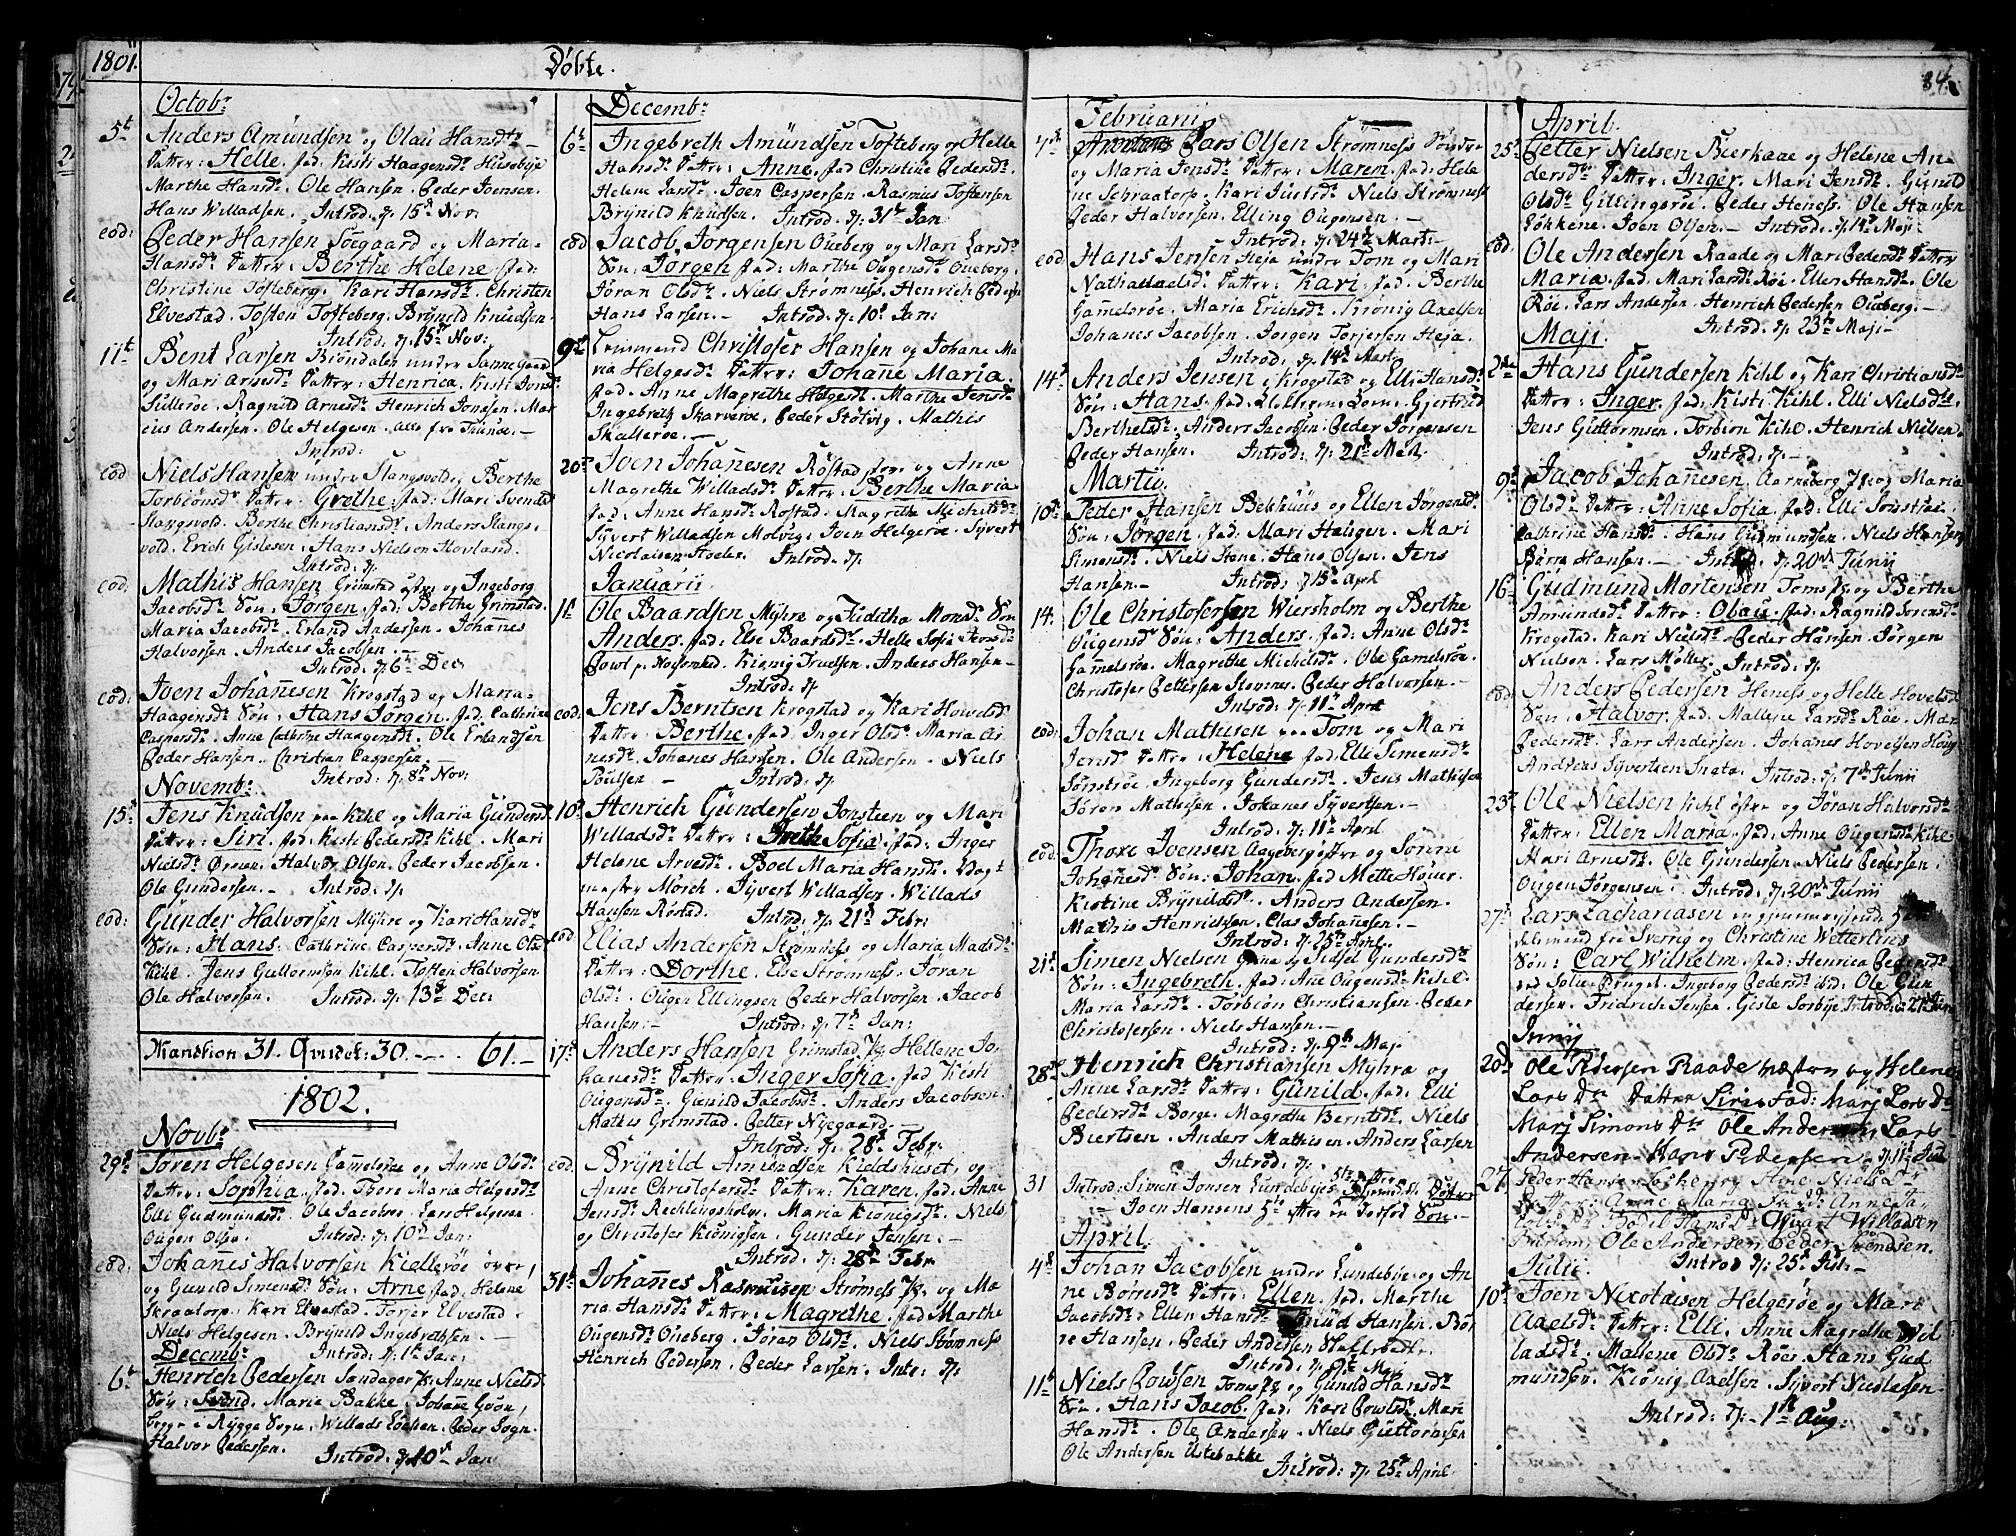 1801.
Døbte.
84.
Octobr
5t Anders Amundsen og Olau Hansdr
Datter: Helle. fad: Kisti Haagensdr Husebye
Marthe Hansdr. Ole Hansen. Peder Joensen.
Hans Willadsen. Introd: d. 15d Nov:
eod: Peder Hansen Soegaard og Maria
Hansdr Datter: Berthe Helene. fad:
Christine Tofteberg. Kari Hansdr. Christen
Elvestad. Tosten Tofteberg. Brynild Knudsen.
Introd: d. 15d Nov:
11t Bent Larsen Brøndalen under
og Mari Arnesdr Datter: Henrica. Kisti Jonsdr
Sillerøe. Ragnild Arnesdr Henrich Jonasen. Mar
cus Andersen. Ole Helgesen. alle fra Thune.
Introd:
eod Niels Hansen under Slangsvold og Berthe
Torbionsdr Datter: Grethe. fad: Mari Svends
Slangsvold. Berthe Christiansdr. Anders Slangs-
vold. Erich Gislesen. Hans Nielsen Hovland.
Introd: d.
eod: Mathis Hansen Grimstad østre og Ingeborg
Jacobsdr Søn: Jørgen. fad: Berthe Grimstad.
Maria Jacobsdr. Erland Andersen. Johannes
Halvorsen. Anders Jacobsen.
Introd: d. 6t Dec:
eod: Joen Johannesen Krogstad og Maria
Haagensdr Søn: Hans Jørgen. fad. Cathrine
Caspersdr. Anne Cathrine Haagensdr. Ole Erlandsen
Peder Hansen. Christian Caspersen.
Introd: d. 8d Nov:
Novembr:
15d Jens Knudsen paa Kihl og Maria Gundersd
Datter: Siri. fad: Kisti Pedersdr Kihl. Mari
Nielsdr Ørsen. Halvor Olsen. Peder Jacobsen.
Ole Gundersen. Introd: d.
eod: Gunder Halvorsen Myhre og Kari Hansdr
Søn: Hans. Cathrine Caspersdr. Anne Olsd
Kihl. Jens Guttormsen Kihl. Tosten Halvorsen
Ole Halvorsen. Introd: d. 13d Dec:
Mandkion 31. Qvindek: 30. 61.
1802.
Novbr
29d Søren Helgesen Gamelsrøe og Anne Olsdr
Datter: Sophia. fad: Thore Maria Helgesdr
Elli Gudmundsdr. Ole Jacobsen. Lars Helgesen
Ougen Olsen. Introd: d. 10d Jan:
eod: Johanes Halvorsen Kiellerøe øvre,
og Gunild Simensdr Søn: Arne. fad: Helene
Skraatorp. Kari Elvestad. Torjer Elvestad.
Niels Helgesen. Brynild Ingebrethsen.
Decembr Introd: d. 1t Jan:
6t Henrich Pedersen Søndager og Anne Nielsd
Søn: Svend. Maria Bakke. Johane Goon,
begge i Rygge Sogn. Willads Løchen. Peder Sogn.
Halvor Pedersen. Introd: d. 10 Jan
Decembr
6t Ingebreth Amundsen Tofteberg og Helle
Hansdr Datter: Anne. fad Christine Pedersdr.
Helene Larsdr. Joen Caspersen. Rasmus Tostensen
Brynild Knudsen. Introd: d. 31t Jan
eod Jacob Jørgensen Oueberg og Mari Larsdr
Søn: Jørgen. fad: Marthe Ougensdr Oueberg.
Jøran Olsdr. Niels Strømness. Henrich Peders
Hans Larsen. Introd: d. 10d Jan:
9d Christofer Hansen og Johane Ma
ria Helgesdr Datter: Johane Maria.
fad. Anne Magrethe Helgesdr. Marthe Jensdr
Ingebreth Skarverøe. Peder Stolvig. Mathis
Skallerøe.
20d Joen Johannesen Røstad og Anne
Magrethe Willadsdr Datter: Berthe Maria
fad: Anne Hansdr Rostad. Magrethe Michelsdr
Syvert Willadsen Molvig. Joen Helgerøe. Syvert
Nicolaisen Introd: d.
Januarii
1t Ole Baardsen Myhre og Fiditha Monsdr Søn
Anders. fad: Else Baardsdr. Helle Sofia Jensdr
Powl p. Kiønig Truelsen. Anders Hansen.
Introd: d.
eod: Jens Berntsen Krogstad og Kari Howelsd
Datter: Berthe. fad: Inger Olsdr. Maria Ar
nesdr. Johanes Hansen. Ole Andersen. Niels
Poulsen. Introd: d.
10d Henrich Gundersen Jonsteen og Mari
Willadsdr Datter: Grethe Sofia. fad: Inger
Helene Arvesdr. Boel Maria Hansdr. Vagt
mester Morch. Syvert Willadsen. Willads
Hansen Røstad. Introd: d. 21d Febr:
eod Elias Andersen Strømness og Maria Madsdr
Datter: Dorthe. Else Strømness. Jøran
Olsdr. Ougen Ellingsen Peder Halvorsen. Jacob
Hansen. Introd: d. 7d Jan:
17d Anders Hansen Grimstad og Hellene Jo-
hanesdr Datter: Inger Sofia. fad Kisti
Ougensdr. Gunild Jacobsdr. Anders Jacobsen
Mathis Grimstad. Petter Nyegaard.
Introd: d. 28d Febr:
eod. Brynild Amundsen Kieldshuset og
Anne Christofersdr Datter: Karen. fad: Anne
Jensdr Rechlingsholm. Maria Kiønigsdr. Niels
og Christofer Kiønigsen. Gunder Jensen.
Introd: d. 28d Febr
31t Johannes Rasmusen Strømess og Ma
ria Hansdr Datter: Magrethe. fad: Marthe
Ougensdr Oueberg. Jøran Olsdr. Niels Strømness
Henrich Pedersen. Peder Larsen. Int: d:
Februarii
7d Lars Olsen Strømness
og Maria Jensdr Datter: Maren. fad: Hele
ne Schraatorp. Kari Justsdr. Niels Strømness
Peder Halvorsen. Elling Ougensen.
Introd: d. 24d Marti:
eod Hans Jensen Heja under Tom og Mari
Nathanaelsdr Datter: Kari. fad: Berthe
Gamelsrøe. Maria Erichsdr. Krønig Axelsen
Johanes Jacobsen. Jørgen Torjersen Heja.
Introd: d. 14d Marti
14d Anders Jensen i Krogstad og Elli Hansdr
Søn: Hans. fad: Gjertrud
Bertheldr. Anders Jacobsen. Peder Jørgensen
Peder Hansen. Introd: d. 21d Mart
Martii.
10d Peder Hansen Bekhuus og Ellen Jørgensdr
Søn: Jørgen. fad: Mari Haugen. Mari
Simensdr. Niels Stene. Hans Olsen. Jens
Hansen. Introd: d 15d April
14. Ole Christofersen Wiersholm og Berthe
Ougensdr Søn: Anders. fad: Anne Olsdr
Gamelsrøe. Magrethe Michelsdr. Ole Gamelsrøe.
Christofer Pettersen Stomnes. Peder Halvorsen.
Introd: d. 11d April
eod: Johan Mathisen paa Tom og Mari
Jensdr Datter: Helene fad. Elli Simensdr
Sønstrøe. Ingeborg Gundersdr. Jens Mathisen
Søren Mathisen. Johanes Syvertsen.
Introd: d. 11d April
eod. Thore Ivensen Aageberg østre og Sønne
Johanesdr Søn: Johan. fad Mette Houer.
Kistine Brynildsdr. Anders Andersen.
Mathis Henrichsen. Clas Johanesen.
Introd: d. 25d April
21d Simen Nielsen Grina og Sidsel Gundersdr
Søn: Ingebreth. fad: Ane Ougensdr Kihl.
Maria Larsdr. Torbion Christiansen. Peder
Christofersen. Niels Hansen.
Introd: d. 9d Maj
28d Henrich Christiansen Myhra og
Anne Larsdr Datter: Gunild. fad: Elli
Pedersdr Borge. Magrethe Berntsdr. Niels
Biertsen. Anders Mathisen. Anders Larsen
Introd: d.
31 Introd: Simen Jonsen Lundebyes Datter
Joen Hansens Søn.
April
4d Johan Jacobsen under Lundebye og An
ne Børresdr Datter: Ellen. fad. Marthe
Jacobsdr. Ellen Hansdr. Knud Hansen. Bør
re Hansen. Peder Andersen
Introd: d. 9d Maj
11t Niels Powsen Toms og Gunild Hansdr
Søn. Hans Jacob. fad: Kari Powlsdr. Mari
Hansdr. Ole Andersen. Niels Guttormsen
Ole Andersen Ustebakke
Introd: d. 25d April
April.
25d Petter Nielsen Bierkane og Helene An-
dersdr Datter: Inger. Mari Jensdr. Gunild
Olsdr Gillingsrøe. Peder Heness. Ole Hansen
Løkkene. Joen Olsen. Introd: d. 14d Maj
eod. Ole Andersen Raade og Mari Pedersdr Datter
Maria. fad. Mari Larsdr Røe. Ellen Hansdr. Ole
Røe. Lars Andersen. Henrich Pedersen Oueberg.
Introd: d. 23d Maj:
Maji.
2den Hans Gundersen Kihl og Kari Christiansdr
Datter: Inger. fad: Kisti Kihl. Elli Nielsdr.
Jens Guttormsen. Torbion Kihl. Henrich Nielsen.
Introd: d.
9d Jacob Johannesen Aarneberg og Maria
Olsdr Datter: Anne Sofia. fad: Elli
Cathrine Hansdr. Hans Gudmundsen. Niels Hansen
Børre Hansen. Introd: d. 20d Junii
16. Gudmund Mortensen Toms og Berthe
Amundsdr Datter: Olau. fad: Ragnild Sørensdr
Krogstad. Kari Nielsdr. Peder Hansen. Jørgen
Nielsen. Lars Møller. Introd: d.
eod: Anders Pedersen Heness og Helle Hovelsd
Søn: Halvor. fad. Mallene Larsdr Røe. Mari
Pedersdr. Lars Andersen. Johanes Hovelsen Houg
Andreas Syvertsen Introd: d. 7d Junii
23d Ole Nielsen Kihl østre og Jøran Halvorsdr
Datter: Ellen Maria. fad: Anne Ougensdr Kihl
Mari Arnesdr. Ole Gundersen. Niels Pedersen.
Ougen Jørgensen. Introd: d. 20d Junii
27d Lars Zachariasen en gjennemrejsende
fra Sverrig og Christine Wetterlius
Søn: Carl Wilhelm. fad: Henrica Pedersdr
ved Solie Bruget. Ingeborg Pedersdr ibid: Ole Gun
dersen. Fridrich Jensen. Gisle Sorbye. Introd: d. 27 Junii
Junij
20d Ole Pedersen Raade Næsten og Helene
Lars Dtr Datter Siri. fad: Marj Lars Dtr
Marj Simons Dtr Ole Andersen, Lars
Andersen. Hans Pedersen. d. 11t Jul
27. Peder Hansen og Ane Niels Dtr
Datter: Anne Maria
Bodil Hans Dtr Willadsen
Ole Andersen Peder Svendsen.
Introd d: 25d Jul:
Julii
10d Joen Nicolaisen Helgerøe og Mari
Axelsdr Datter: Elli. Anne Magrethe Wil
ladsdr. Mallene Olsdr Røes. Hans Gud
mundsen. Kiønig Axelsen. Syvert Nielsen.
Introd: d: 1t Aug: